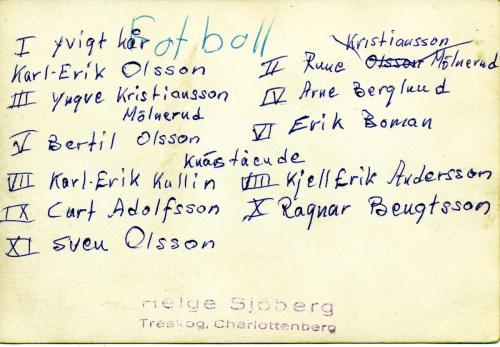 Fotboll
I yvigt hår
Karl-Erik Olsson
Kristiansson
II Rune Olsson Mölnerud
III Yngve Kristiansson
Mölnerud
IV Arne Berglund
V Bertil Olsson
VI Erik Boman
Knästående
VII Karl-Erik Kullin
VIII Kjell Erik Andersson
IX Curt Adolfsson
X Ragnar Bengtsson
XI Sven Olsson
Helge Sjöberg
Treskog, Charlottenberg